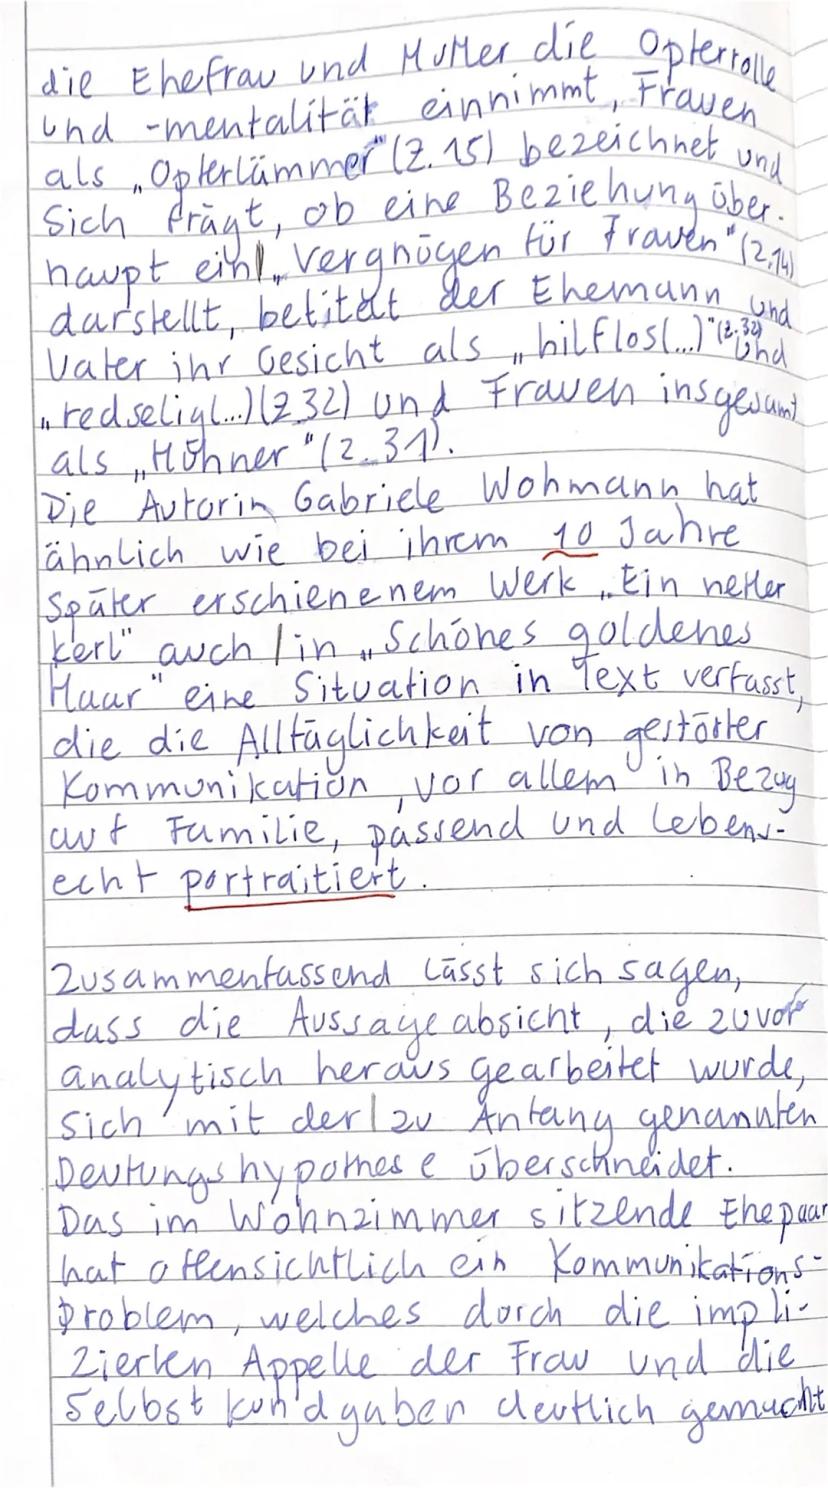 die Ehefrau und Mutter die Opferrolle
und -mentalität einnimmt, Frauen
als „Opferlämmer" (Z. 15) bezeichnet und
sich frägt, ob eine Beziehung über-
haupt ein „Vergnügen für Frauen" (Z.14)
darstellt, betitelt der Ehemann und
Vater ihr Gesicht als „hilflos(...)" (Z.32) und
„redselig(...) (Z 32) und Frauen insgesamt
als „Hühner" (Z. 31).
Die Autorin Gabriele Wohmann hat
ähnlich wie bei ihrem 10 Jahre
später erschienenem Werk „Ein netter
Kerl" auch in „Schönes goldenes
Haar" eine Situation in Text verfasst,
die die Alltäglichkeit von gestörter
Kommunikation, vor allem in Bezug
auf Familie, passend und lebens-
echt portraitiert.
Zusammenfassend lässt sich sagen,
dass die Aussageabsicht, die zuvor
analytisch herausgearbeitet wurde,
sich mit der zu Anfang genannten
Deutungshypothese überschneidet.
Das im Wohnzimmer sitzende Ehepaar
hat offensichtlich ein Kommunikations-
problem, welches durch die impli-
zierten Appelle der Frau und die
Selbstkundgaben deutlich gemacht